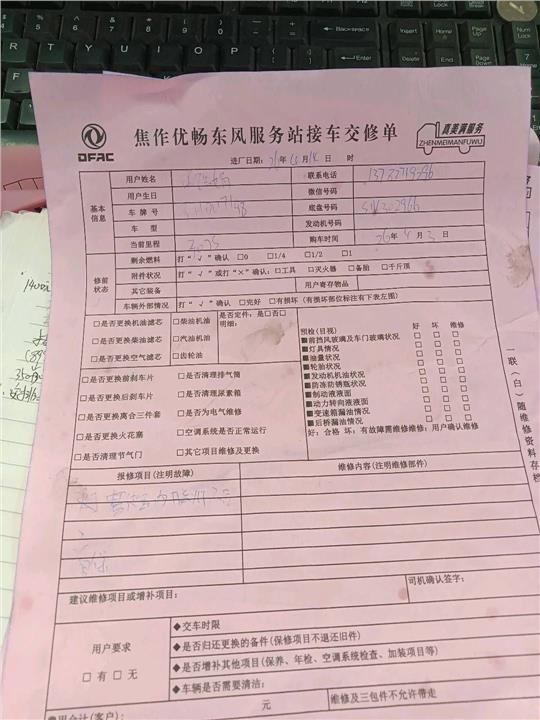 DFAC
焦作优畅东风服务站接车交修单
真美满服务
ZHENMEIMANFUWU
进厂日期: 年 月 日 时
基本信息
用户姓名
联系电话
用户生日
微信号码
车牌号
底盘号码
车 型
发动机号码
当前里程
购车时间 26年 4月 3日
修前状态
剩余燃料 打“√”确认 □0 □1/4 □1/2 □1
附件状况 打“√”或打“×”确认:□工具 □灭火器 □备胎 □千斤顶
其它装备
用户寄存物品
车辆外部情况 打“√”确认 □完好 □有损坏(有损坏部位标注有下表左图)
□是否更换机油滤芯 □柴油机油
□是否更换柴油滤芯 □汽油机油
□是否更换空气滤芯 □齿轮油
是否定件: 是□否□
明细:
□是否更换前刹车片 □是否清理排气筒
□是否更换后刹车片 □是否清理尿素箱
□是否更换离合三件套 □是否为电气维修
□是否更换火花塞 □空调系统是否正常运行
□是否清理节气门 □其它项目维修及更换
预检(目视) 好 坏 维修
■前挡风玻璃及车门玻璃状况 □ □ □
■灯具情况 □ □ □
■油量状况 □ □ □
■轮胎状况 □ □ □
■发动机机油状况 □ □ □
■防冻防锈瓶状况 □ □ □
■制动液液面 □ □ □
■动力转向液液面 □ □ □
■变速箱漏油情况 □ □ □
■后桥漏油情况 □ □ □
好: 合格 坏: 有故障需维修维修: 用户确认维修
一联(白)随维修资料存档
报修项目(注明故障)
维修内容(注明维修部件)
首保
建议维修项目或增补项目:
司机确认签字:
用户要求
□ 有 □ 无
◆交车时限
◆是否归还更换的备件(保修项目不退还旧件)
◆是否增补其他项目(保养、年检、空调系统检查、加装项目等)
◆车辆是否需要清洁:
费用合计(客户): 元
维修及三包件不允许带走